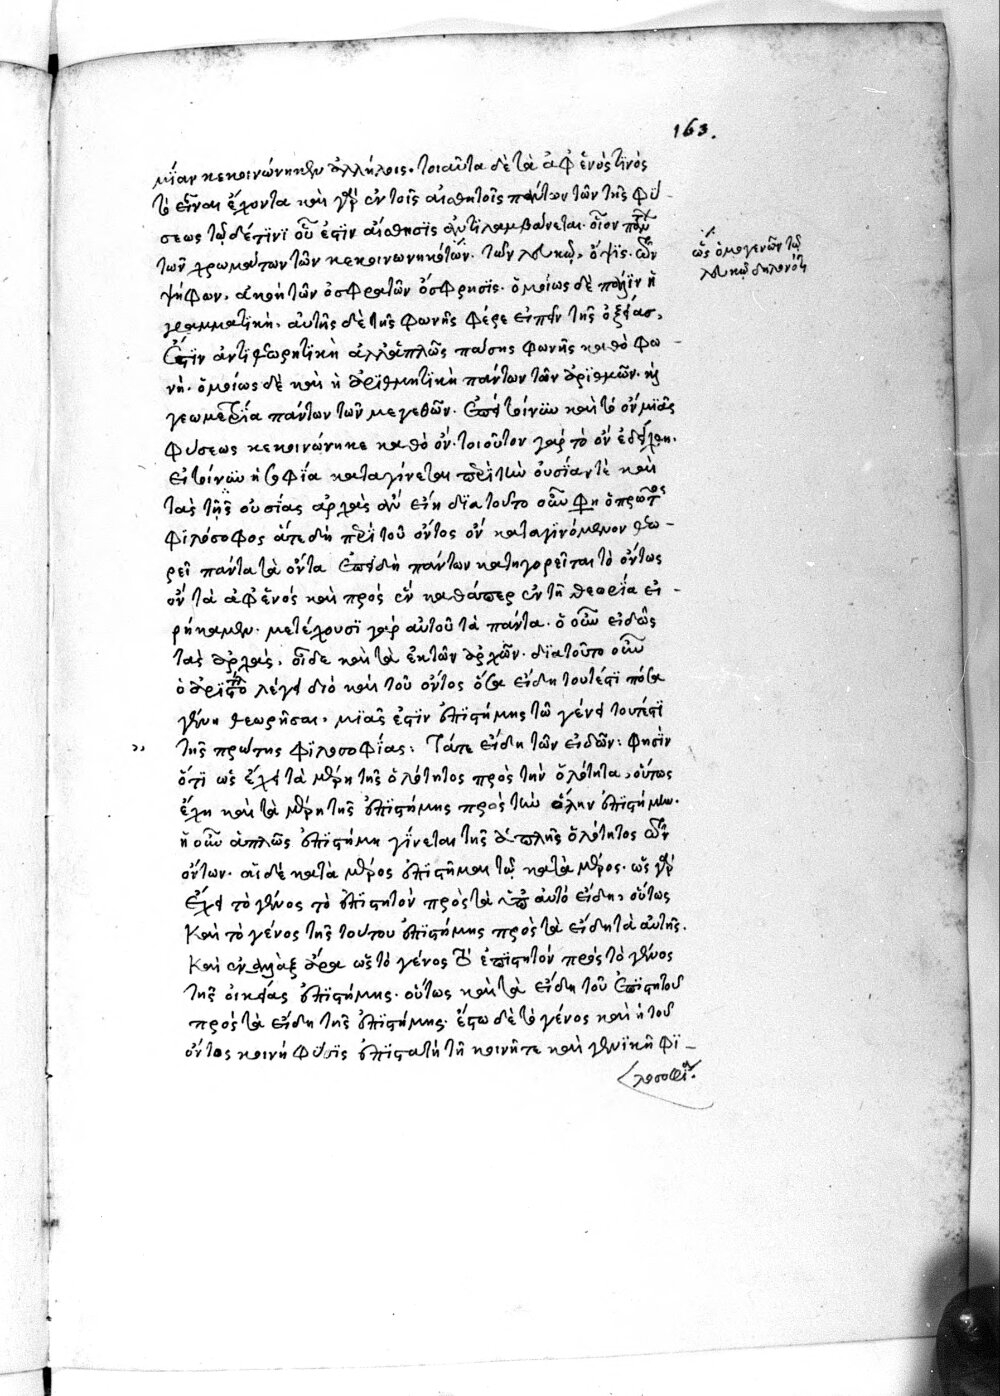 163.
μίαν κεκοινώνηκεν ἀλλήλοις. τοιαῦτα δὲ τὰ ἀφ' ἑνός τινος
τὸ εἶναι ἔχοντα καὶ γὰρ ἐν τοῖς αἰσθητοῖς πάντων τῶν τῆς φύ-
σεως τῷδέ τινι οὗ ἐστιν αἴσθησις ἀντιλαμβάνεται. οἷον πάντων
τῶν χρωμάτων τῶν κεκοινωνηκότων. τῶν λευκῷ, ὄψις. τῶν
ὡς ὁμογενῶν τῷ
λευκῷ δηλονότι
ψόφων, ἀκοὴ τῶν ὀσφρατῶν ὄσφρησις. ὁμοίως δὲ πάλιν ἡ
γραμματικὴ, αὐτῆς δὲ τῆς φωνῆς φέρε εἰπεῖν τῆς ὀξείας,
ἐστὶν ἀντιθεωρητικὴ ἀλλ' ἁπλῶς πάσης φωνῆς καθὸ φω-
νή. ὁμοίως δὲ καὶ ἡ ἀριθμητικὴ πάντων τῶν ἀριθμῶν. ἡ
γεωμετρία πάντων τῶν μεγεθῶν. ἐπεὶ τοίνυν καὶ τὸ ὂν μιᾶς
φύσεως κεκοινώνηκε καθὸ ὄν. τοιοῦτον γὰρ τὸ ὂν ἐδείχθη.
εἰ τοίνυν ἡ σοφία καταγίνεται περὶ τὴν οὐσίαν τὲ καὶ
τὰς τῆς οὐσίας ἀρχὰς ἂν εἴη διατοῦτο οὖν φη ὁ πρῶτος
φιλόσοφος ἅτε δὴ περὶ τοῦ ὄντος ὂν καταγινόμενον θεω-
ρεῖ πάντα τὰ ὄντα ἐπειδὴ πάντων κατηγορεῖται τὸ ὄντως
ὂν τὰ ἀφ' ἑνὸς καὶ πρὸς ἓν καθάπερ ἐν τῇ θεωρίᾳ εἰ-
ρήκαμεν. μετέχουσι γὰρ αὐτοῦ τὰ πάντα. ὁ οὖν εἰδὼς
τὰς ἀρχὰς, οἶδε καὶ τὰ ἐκ τῶν ἀρχῶν. διατοῦτο οὖν
ὁ ἀριστο λέγει διὸ καὶ τοῦ ὄντος ὅσα εἴδη τουτέστι πόσα
γένη θεωρῆσαι, μιᾶς ἐστιν ἐπιστήμης τῷ γένει τουτέστι
" τῆς πρώτης φιλοσοφίας: Τάτε εἴδη τῶν εἰδῶν: φησὶν
ὅτι ὡς ἔχει τὰ μέρη τῆς ὁλότητος πρὸς τὴν ὁλότητα, οὕτως
ἔχει καὶ τὰ μέρη τῆς ἐπιστήμης πρὸς τὴν ὅλην ἐπιστήμην.
ἡ οὖν ἁπλῶς ἐπιστήμη γίνεται τῆς ἁπλῆς ὁλότητος τῶν
ὄντων. αἱ δὲ κατὰ μέρος ἐπιστῆμαι τῶν κατὰ μέρος. ὡς γὰρ
ἔχει τὸ γένος τὸ ἐπιστητὸν πρὸς τὰ ὑπ' αὐτὸ εἴδη, οὕτως
καὶ τὸ γένος τῆς τούτου ἐπιστήμης πρὸς τὰ εἴδη τὰ αὐτῆς.
Καὶ ἐναλλὰξ ἄρα ὡς τὸ γένος τοῦ ἐπιστητὸν πρὸς τὸ γένος
τῆς οἰκείας ἐπιστήμης. οὕτως καὶ τὰ εἴδη τοῦ ἐπιστητοῦ
πρὸς τὰ εἴδη τῆς ἐπιστήμης. ἔστω δὲ τὸ γένος καὶ ἡ τοῦ
ὄντος κοινὴ φύσις ἐπιστατὴ τῇ κοινῇ τε καὶ γενικῇ φι-
λοσοφίᾳ.